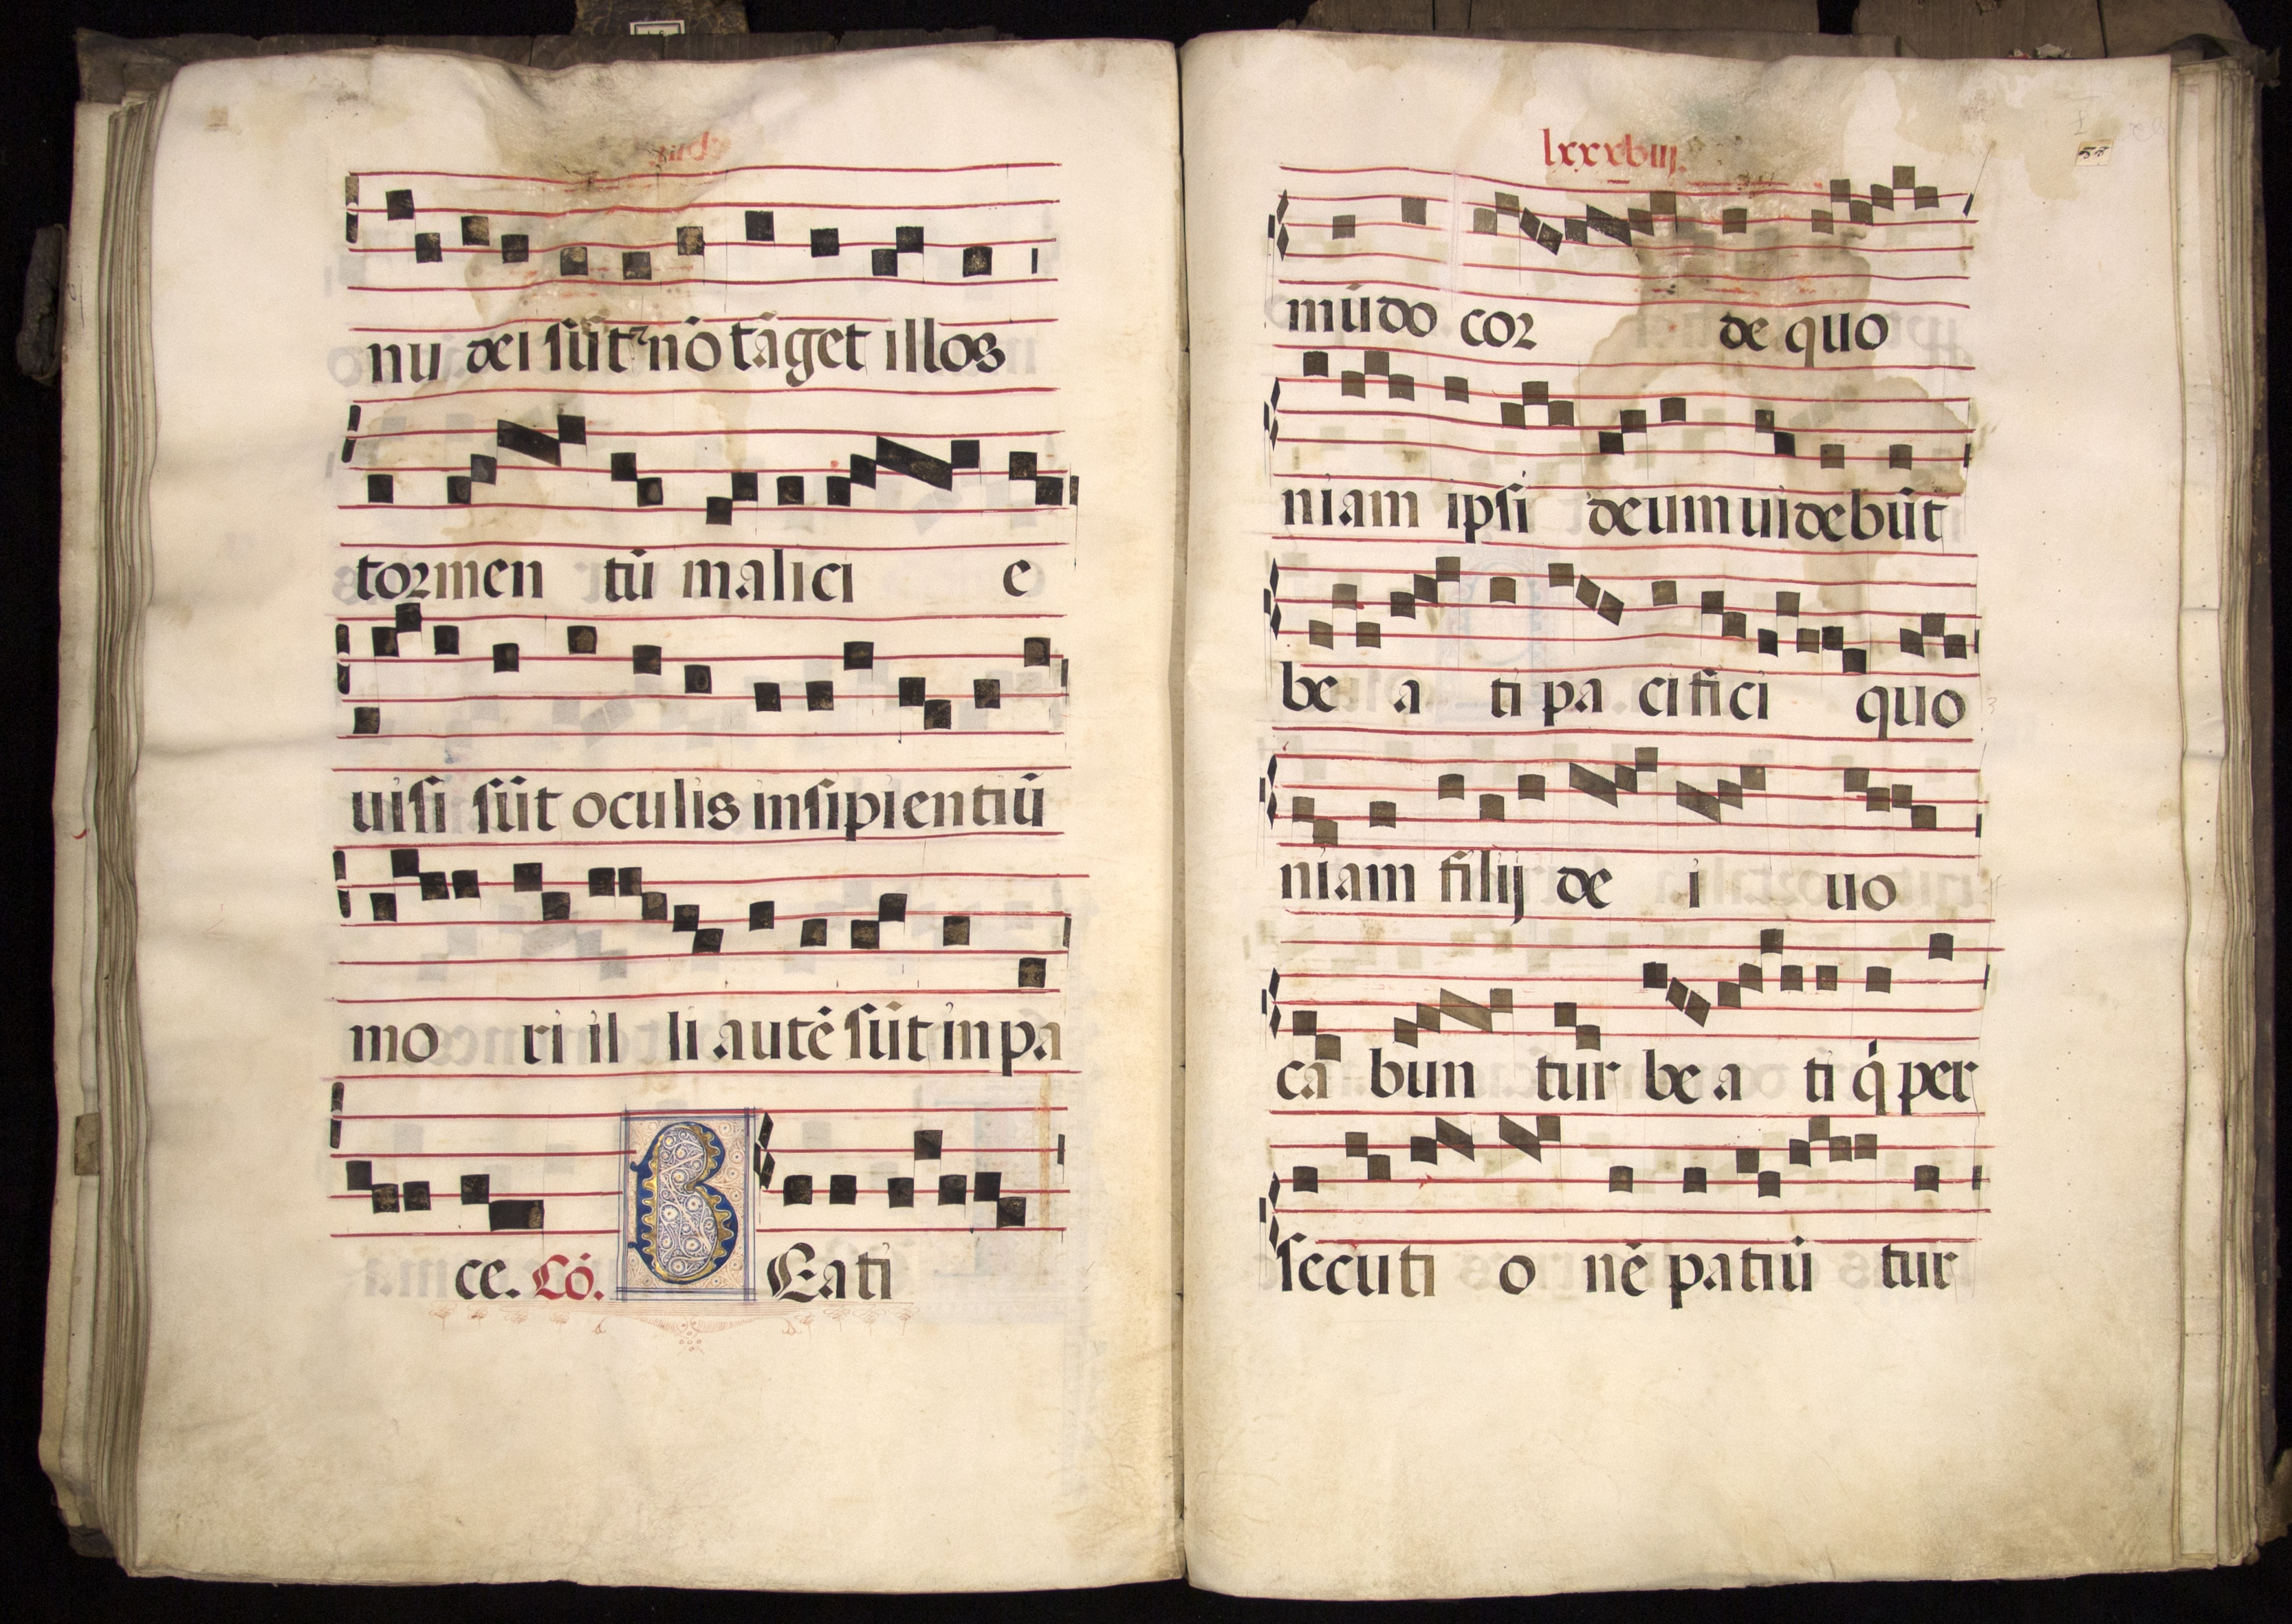 nu dei sūt ⁊ nō tāget illos
tormen tū malici e
uisi sūt oculis insipientiū
mo ri il li autē sūt in pa
ce. Cō. BEati
lxxxbiij.
58
mūdo cor de quo
niam ipsi deum uidebūt
be a ti pa cifici quo
niam filij de i uo
ca bun tur be a ti q́ per
secuti o nē patiū tur